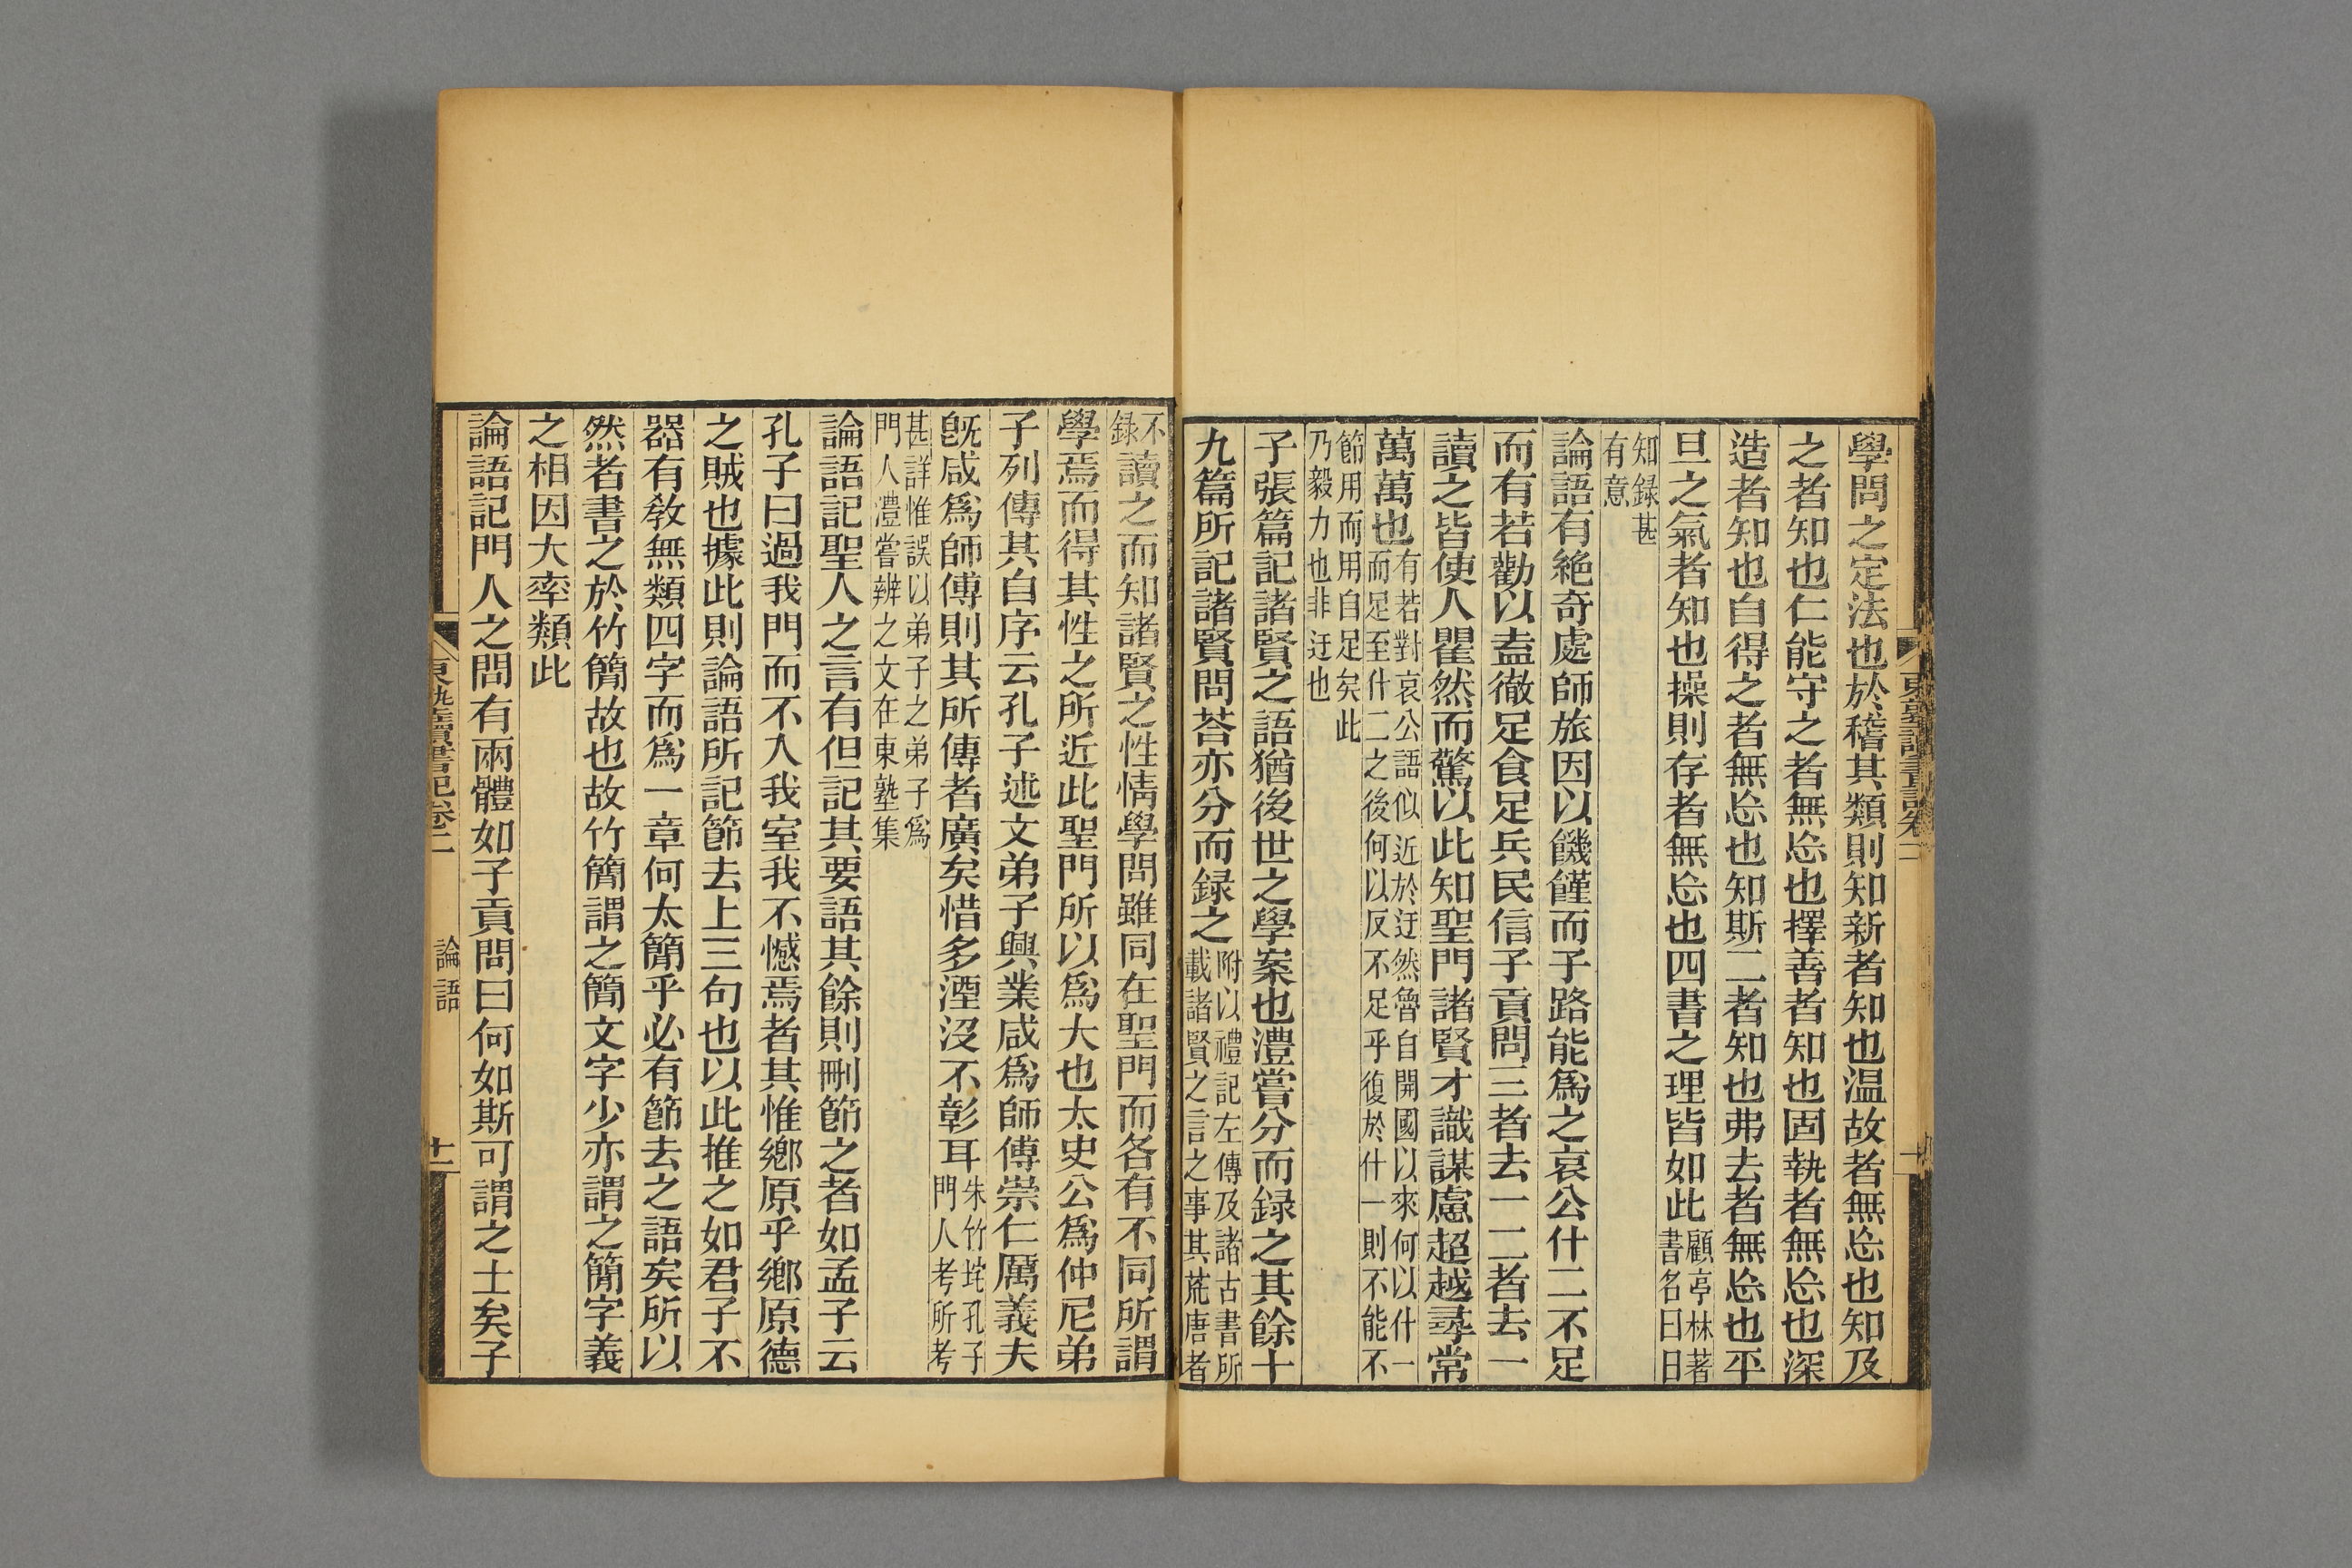 學問之定法也於稽其類則知新者知也温故者無𢗅也知及
之者知也仁能守之者無𢗅也擇善者知也固執者無𢗅也深
造者知也自得之者無𢗅也知斯二者知也弗去者無𢗅也平
旦之氣者知也操則存者無𢗅也四書之理皆如此顧亭林著
書名曰日
知録甚
有意
論語有絶奇處師旅因以饑饉而子路能爲之哀公什二不足
而有若勸以盍徹足食足兵民信子貢問三者去一二者去一
讀之皆使人瞿然而驚以此知聖門諸賢才識謀慮超越尋常
萬萬也有若對哀公語似近於迂然魯自開國以來何以什一
而足至什二之後何以反不足乎復於什一則不能不
節用而用自足矣此
乃毅力也非迂也
子張篇記諸賢之語猶後世之學案也澧嘗分而録之其餘十
九篇所記諸賢問荅亦分而録之附以禮記左傳及諸古書所
載諸賢之言之事其荒唐者
東塾讀書記卷二
不
録讀之而知諸賢之性情學問雖同在聖門而各有不同所謂
學焉而得其性之所近此聖門所以爲大也太史公爲仲尼弟
子列傳其自序云孔子述文弟子興業咸爲師傅崇仁厲義夫
旣咸爲師傅則其所傳者廣矣惜多湮沒不彰耳朱竹垞孔子
門人考所考
甚詳惟誤以弟子之弟子爲
門人澧嘗辨之文在東塾集
論語記聖人之言有但記其要語其餘則刪節之者如孟子云
孔子曰過我門而不入我室我不憾焉者其惟鄉原乎鄉原德
之賊也據此則論語所記節去上三句也以此推之如君子不
器有敎無類四字而爲一章何太簡乎必有節去之語矣所以
然者書之於竹簡故也故竹簡謂之簡文字少亦謂之簡字義
之相因大率類此
論語記門人之問有兩體如子貢問曰何如斯可謂之士矣子
東塾讀書記卷二
論語
十一